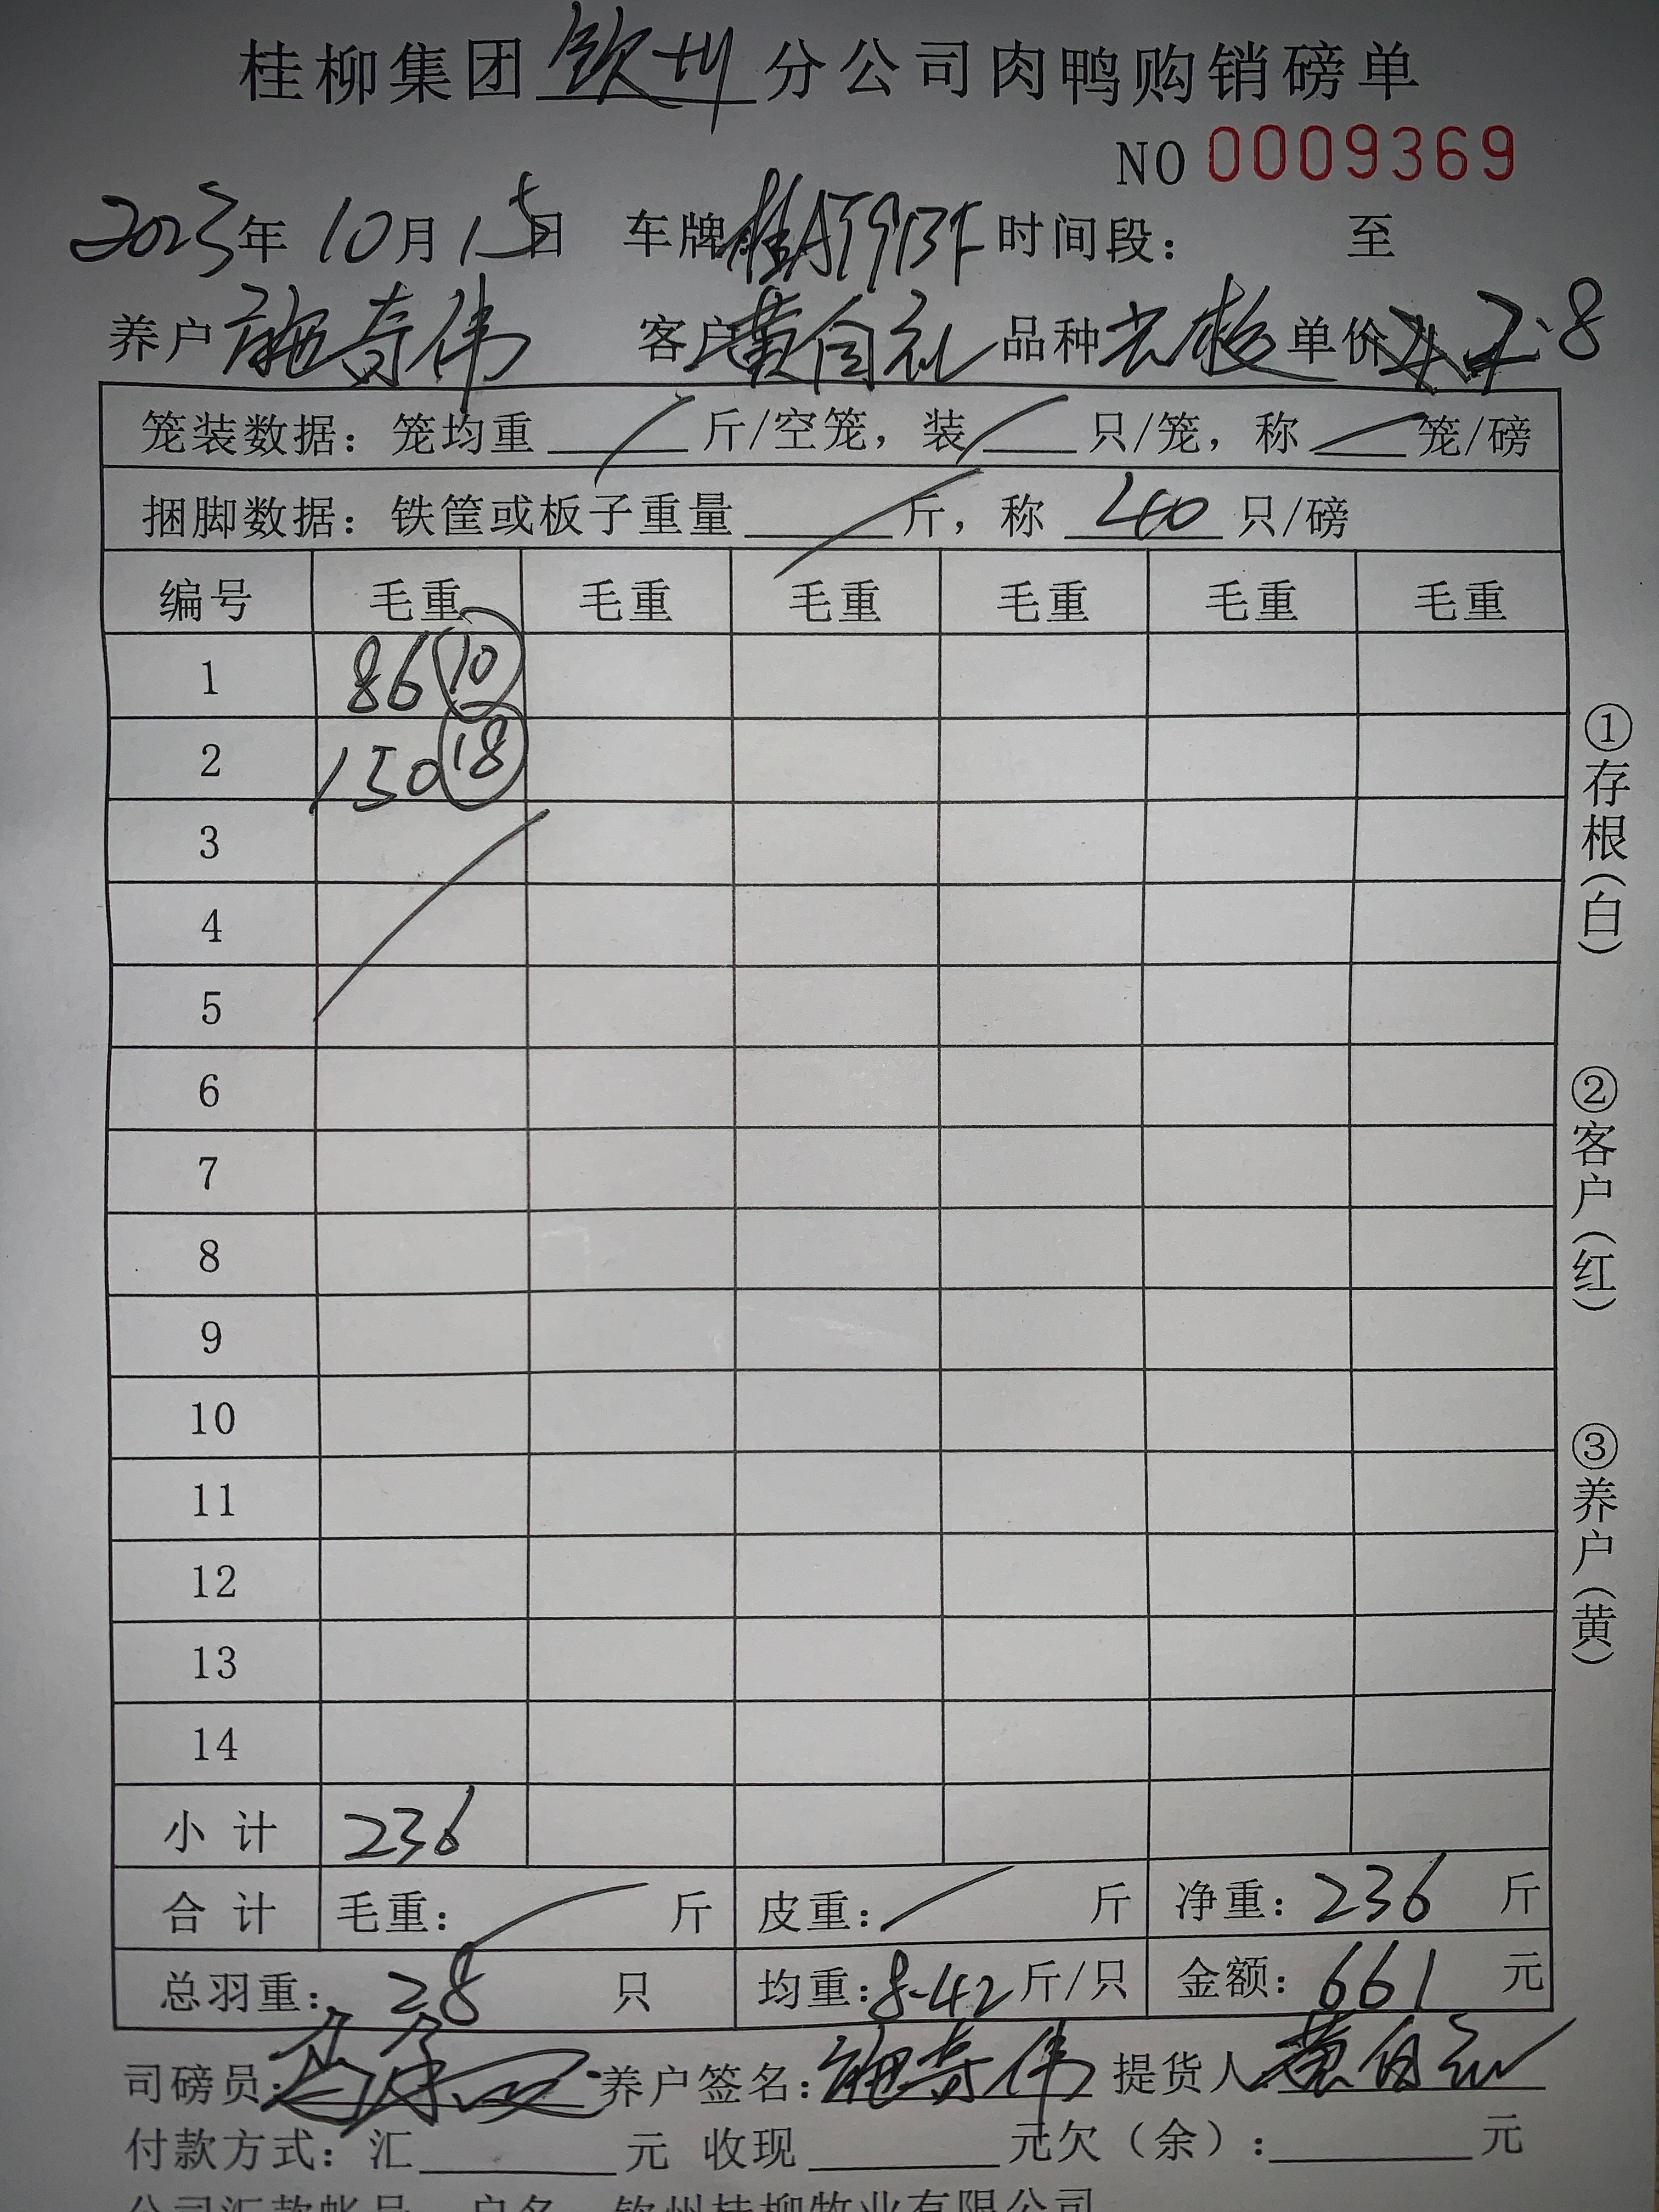 桂柳集团钦州分公司肉鸭购销磅单
NO 0009369
2023年10月15日 车牌桂 时间段： 至
养户施奇伟 客户黄自礼 品种 单价 2.8
笼装数据：笼均重 斤/空笼，装 只/笼，称 笼/磅
捆脚数据：铁筐或板子重量 斤，称 40 只/磅
编号 毛重 毛重 毛重 毛重 毛重 毛重
1 86 10
2 150 18
3
4
5
6
7
8
9
10
11
12
13
14
小计 236
合计 毛重： 斤 皮重： 斤 净重：236 斤
总羽重：28 只 均重：8.42斤/只 金额：661 元
司磅员： 养户签名：施奇伟 提货人：黄自礼
付款方式：汇 元 收现 元欠（余）： 元
公司汇款帐号 户名 钦州桂柳牧业有限公司
①存根（白）
②客户（红）
③养户（黄）